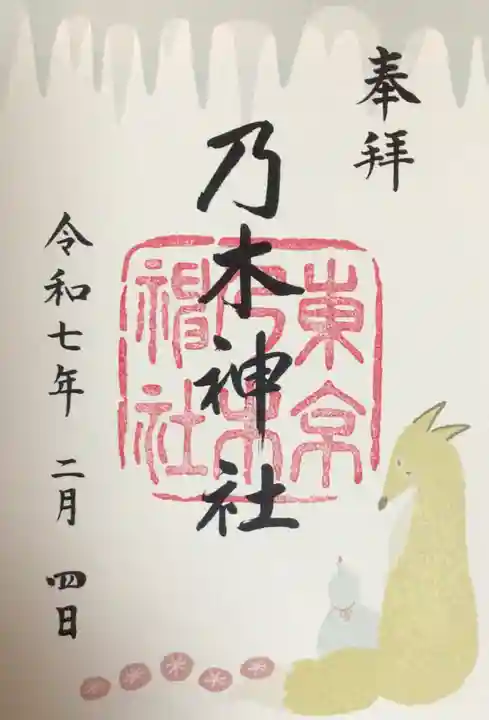 奉拝
乃木神社
東京
乃木
神社
令和七年 二月 四日